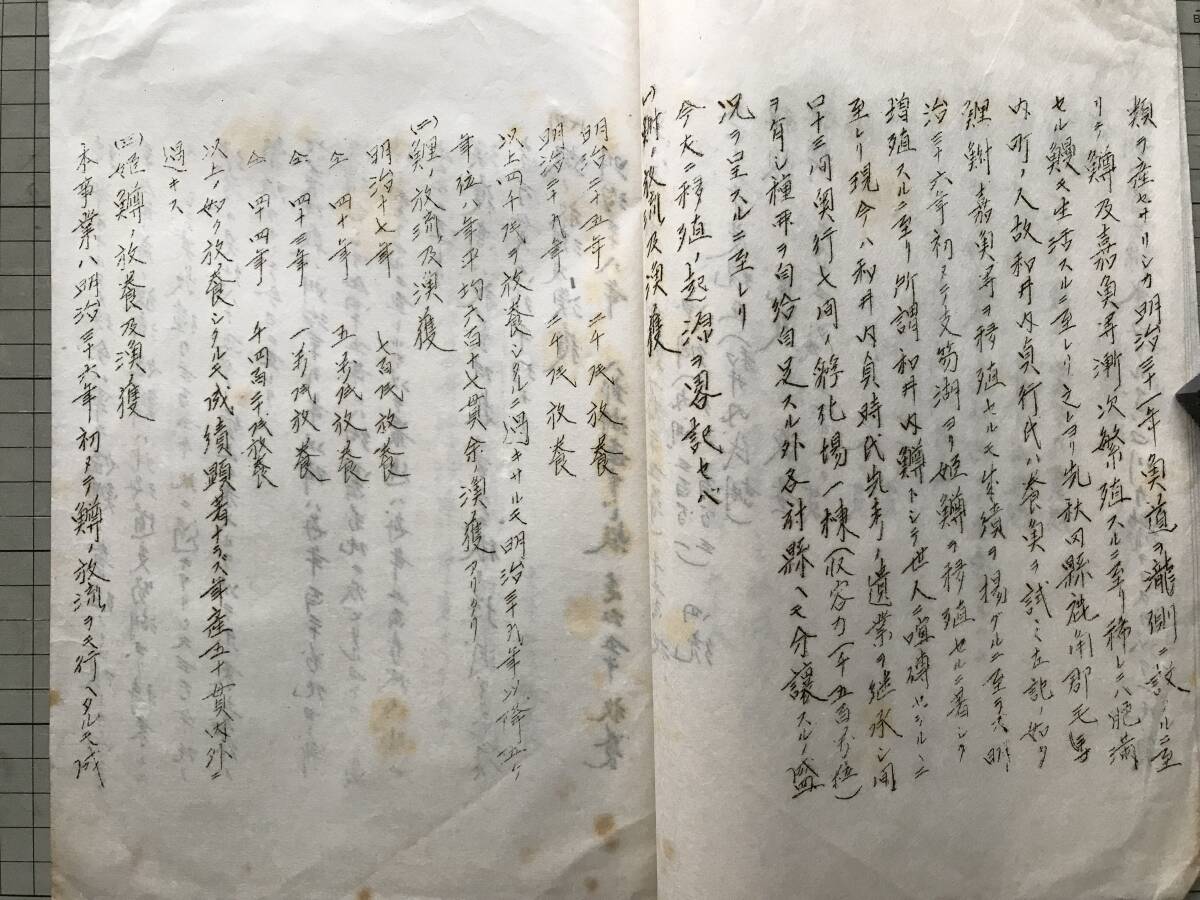 類ヲ産セサリシカ明治三十一年魚道ヲ瀧側ニ設クルニ至
リテ鱒及嘉魚等漸次繁殖スルニ至リ稀レニハ肥満
セル鰻モ生活スルニ至レリ之レヨリ先秋田縣鹿角郡毛馬
内町ノ人故和井内貞行氏ハ養魚ヲ試ミ左記ノ如ク
鯉鮒嘉魚等ヲ移殖セルモ成績ヲ揚グルニ至ラス明
治三十六年初メテ支笏湖ヨリ姫鱒ヲ移殖セルニ著シク
増殖スルニ至リ所謂和井内鱒トシテ世人ニ喧磚セラルルニ
至レリ現今ハ和井内貞時氏先考ノ遺業ヲ継承シ間
口十三間奥行七間ノ孵化場一棟(収容力一千五百万位)
ヲ有シ種卵ヲ自給自足スル外各府縣ヘモ分讓スルノ盛
況ヲ呈スルニ至レリ
今夫ニ移殖ノ起源ヲ畧記セバ
(一)鮒ノ放流及漁獲
明治二十五年 二千尾放養
明治二十九年 二千尾放養
以上四千尾ヲ放養シタルニ過キサルモ明治三十九年以降五ケ
年位ハ年平均六百十七貫余漁獲アリタリ
(二)鯉ノ放流及漁獲
明治十七年 七百尾放養
仝 四十年 五万尾放養
仝 四十三年 一万尾放養
仝 四十四年 千四百二十尾放養
以上ノ如ク放養シタルモ成績顕著ナラス年産五十貫内外ニ
過キス
(三)姫鱒ノ放養及漁獲
本事業ハ明治三十六年初メテ鱒ノ放流ヲ行ヘタルモ成